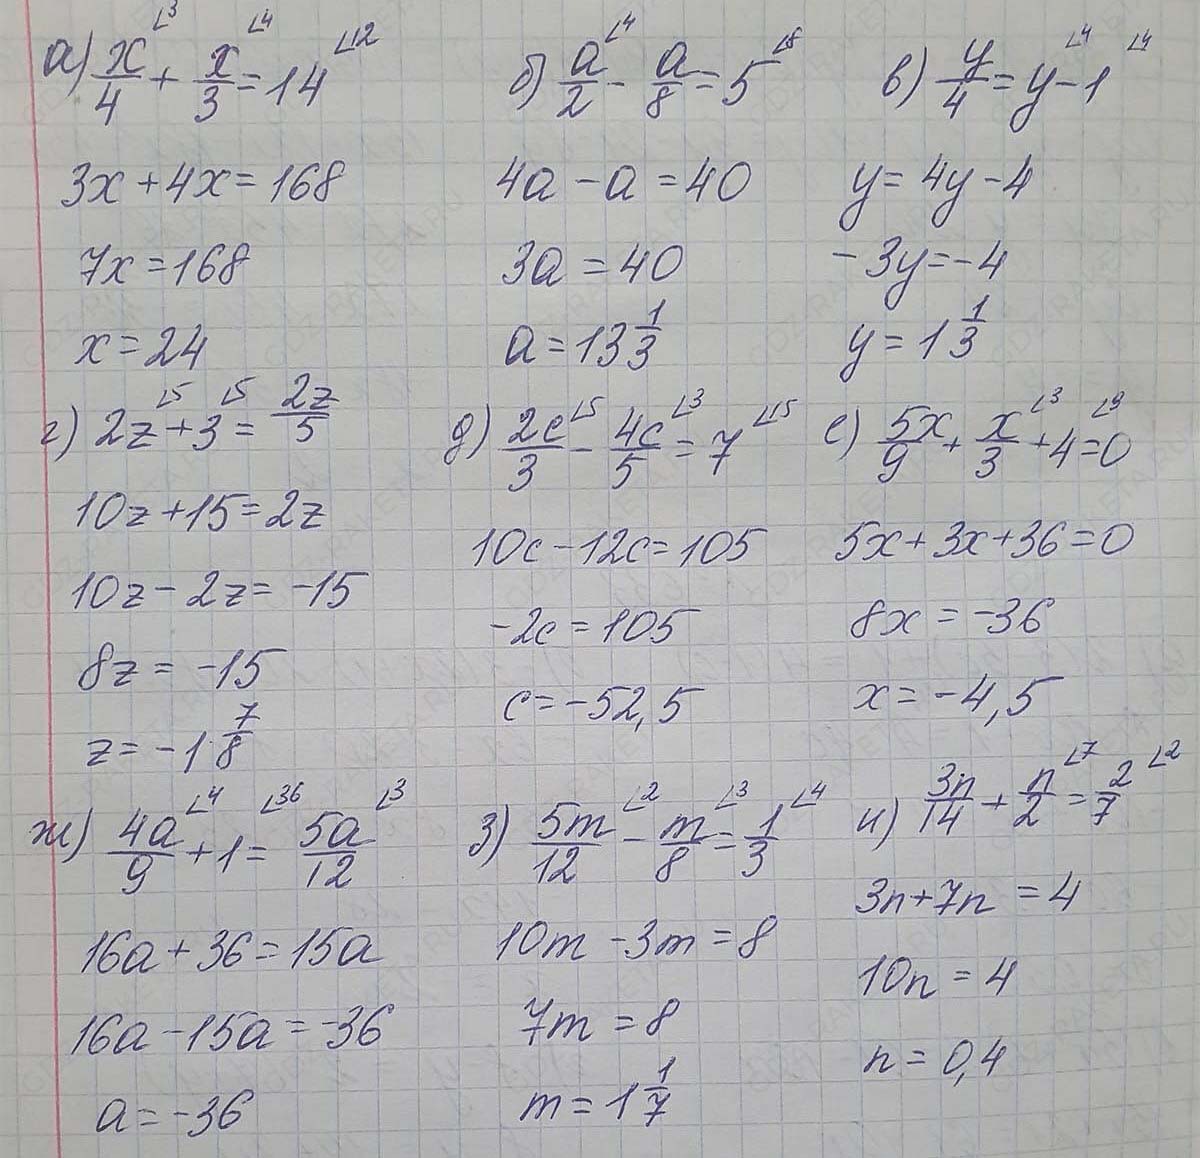 а) x/4 ∠3 + x/3 ∠4 = 14 ∠12
3x + 4x = 168
7x = 168
x = 24
б) a/2 ∠4 - a/8 = 5 ∠8
4a - a = 40
3a = 40
a = 13 1/3
в) y/4 = y ∠4 - 1 ∠4
y = 4y - 4
-3y = -4
y = 1 1/3
г) 2z ∠5 + 3 ∠5 = 2z/5
10z + 15 = 2z
10z - 2z = -15
8z = -15
z = -1 7/8
д) 2c/3 ∠5 - 4c/5 ∠3 = 7 ∠15
10c - 12c = 105
-2c = 105
c = -52,5
е) 5x/9 + x/3 ∠3 + 4 ∠9 = 0
5x + 3x + 36 = 0
8x = -36
x = -4,5
ж) 4a/9 ∠4 + 1 ∠36 = 5a/12 ∠3
16a + 36 = 15a
16a - 15a = -36
a = -36
з) 5m/12 ∠2 - m/8 ∠3 = 1/3 ∠4
10m - 3m = 8
7m = 8
m = 1 1/7
и) 3n/14 + n/2 ∠7 = 2/7 ∠2
3n + 7n = 4
10n = 4
n = 0,4